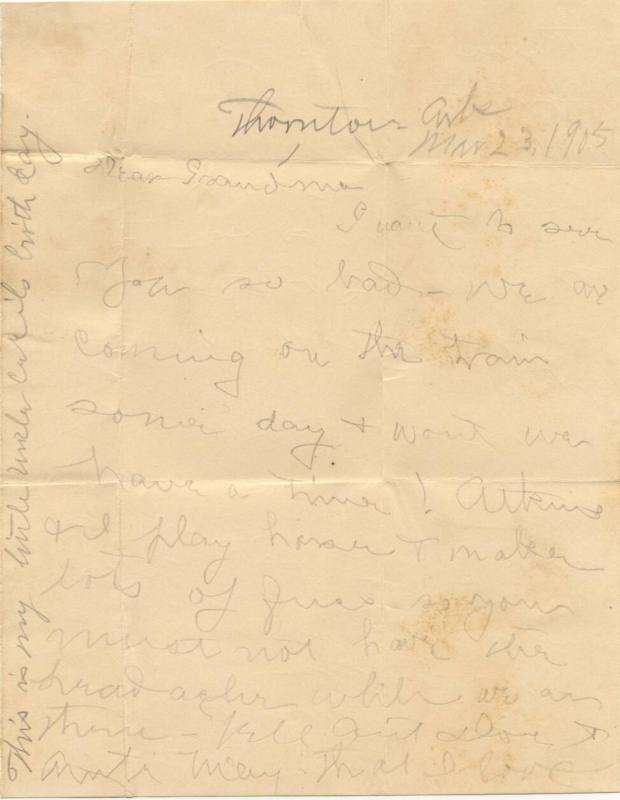 Thornton Arks
Mar 23, 1905
Dear Grandma
I want to see
You so bad - We are
coming on the train
some day & wont we
have a time! Atkins
& I play horse & make
lots of fuss so you
must not have the
headache while we are
there - Tell Aunt &
Aunti May that I love
This is my little uncle birth day.